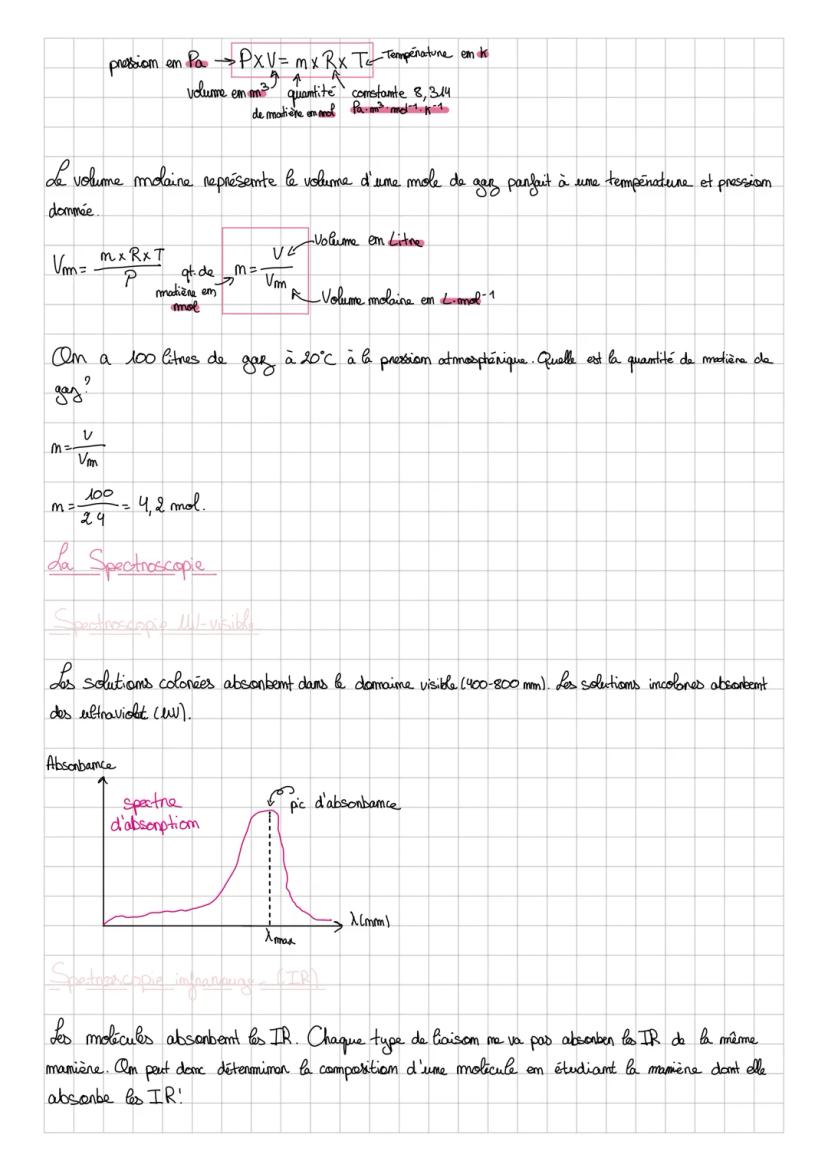 pression en Pa → P×V = n×R×T ← Température en K
volume en m³ quantité constante 8,314
de matière en mol Pa·m³·mol⁻¹·K⁻¹
Le volume molaire représente le volume d'une mole de gaz parfait à une température et pression
donnée.
Vm = n×R×T / P
qt. de matière en mol → n = V / Vm
Volume en Litre
Volume molaire en L·mol⁻¹
On a 100 litres de gaz à 20°C à la pression atmosphérique. Quelle est la quantité de matière de
gaz?
n = V / Vm
n = 100 / 24 = 4,2 mol.
La Spectroscopie
Spectroscopie UV-visible
Les solutions colorées absorbent dans le domaine visible (400-800 nm). Les solutions incolores absorbent
des ultraviolet (UV).
Absorbance
spectre
d'absorption
pic d'absorbance
λ(nm)
λmax
Spectroscopie infrarouge - (IR)
Les molécules absorbent les IR. Chaque type de liaison ne va pas absorber les IR de la même
manière. On peut donc déterminer la composition d'une molécule en étudiant la manière dont elle
absorbe les IR!